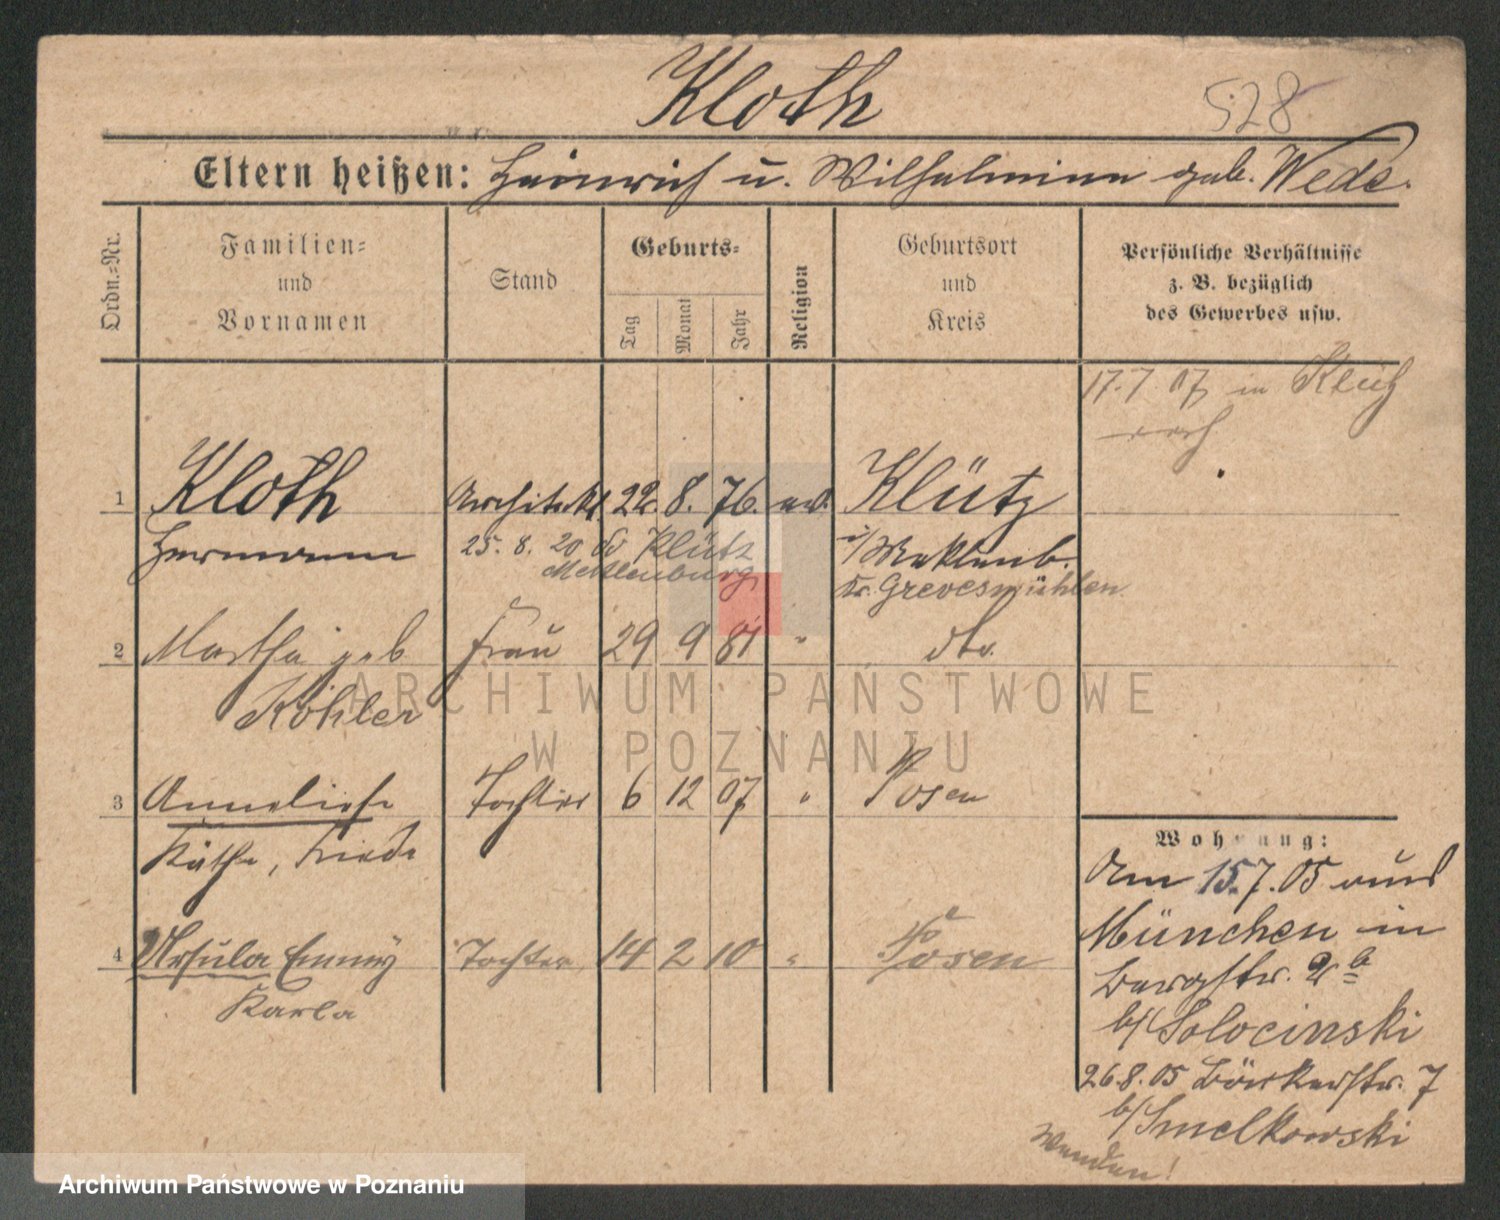 Kloth
528
Eltern heißen: Heinrich u. Wilhelmine geb. Wede.
Ordn.=Nr.
Familien=
und
Vornamen
Stand
Geburts=
Tag
Monat
Jahr
Religion
Geburtsort
und
Kreis
Persönliche Verhältnisse
z. B. bezüglich
des Gewerbes usw.
17.7.07 in Klütz
1 Kloth Architekt 22. 8. 76. ev. Klütz
Hermann 25. 8. 20 Klütz i/Mecklenb.
Mecklenburg Kr. Grevesmühlen
2 Martha geb Frau 29 9 81 " dto.
Köhler
3 Anneliese Tochter 6 12 07 " Posen
Käthe, Frieda
4 Ursula Emmy Tochter 14 2 10 " Posen
Karla
Wohnung:
Am 15.7.05 aus
München in
Bergstr. 2b
b/Solocinski
26.8.05 Bäckerstr. 7
b/Smelkowski
Wenden!
ARCHIWUM PAŃSTWOWE
W POZNANIU
Archiwum Państwowe w Poznaniu